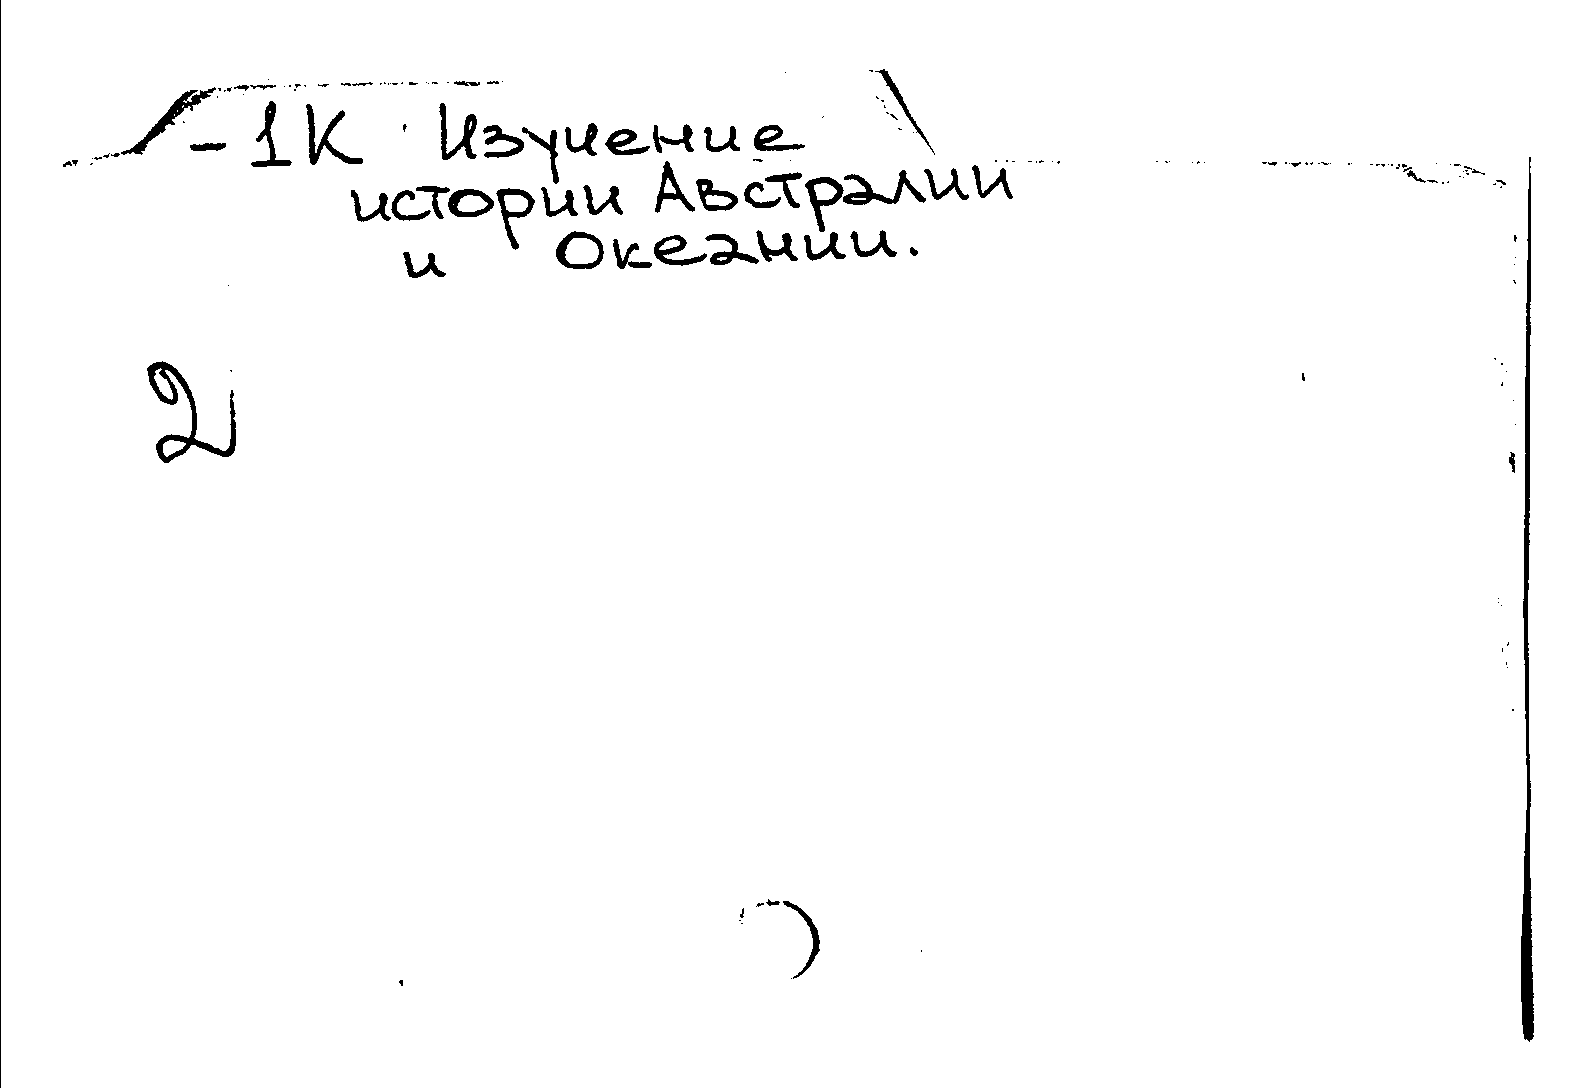 -1К Изучение
истории Австралии
и Океании.
2